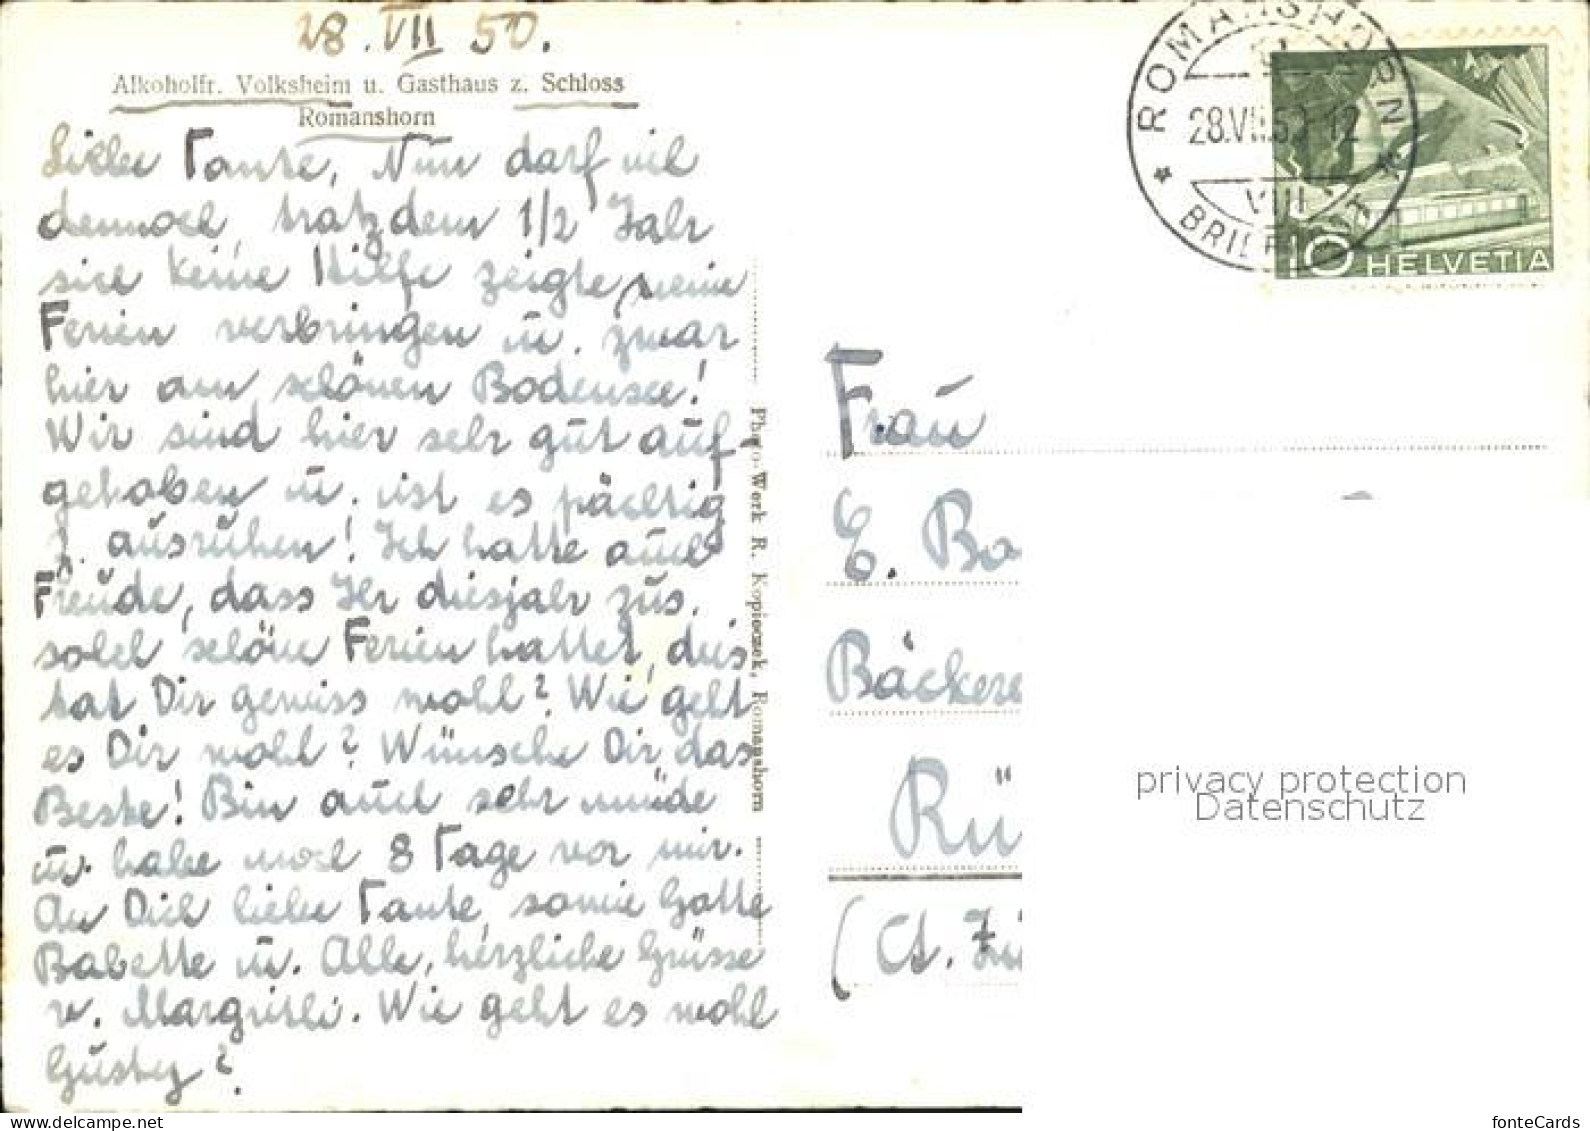 28. VII 50.
Alkoholfr. Volksheim u. Gasthaus z. Schloss
Romanshorn
Liebe Tante, Nun darf ich
dennoch, trotzdem 1/2 Jahr
sich keine Hilfe zeigte, meine
Ferien verbringen u. zwar
hier am schönen Bodensee!
Wir sind hier sehr gut auf-
gehoben u. ist es prächtig
z. ausruhen! Ich hatte auch
Freude, dass Ihr diesjahr zus.
solch schöne Ferien hattet, dies
tat Dir gewiss wohl? Wie geht
es Dir wohl? Wünsche Dir das
Beste! Bin auch sehr müde
u. habe noch 8 Tage vor mir.
An Dich liebe Tante, sowie Gotte
Babette u. Alle, herzliche Grüsse
v. Margritli. Wie geht es wohl
Gusty?
Photo-Werk R. Kopieczek, Romanshorn
ROMANSHORN
28.VII.50 12
VIII
BRIEF
10 HELVETIA
Frau
E. Bo
Bäckere
Rü
(Ct. Zü
privacy protection
Datenschutz
fonteCards